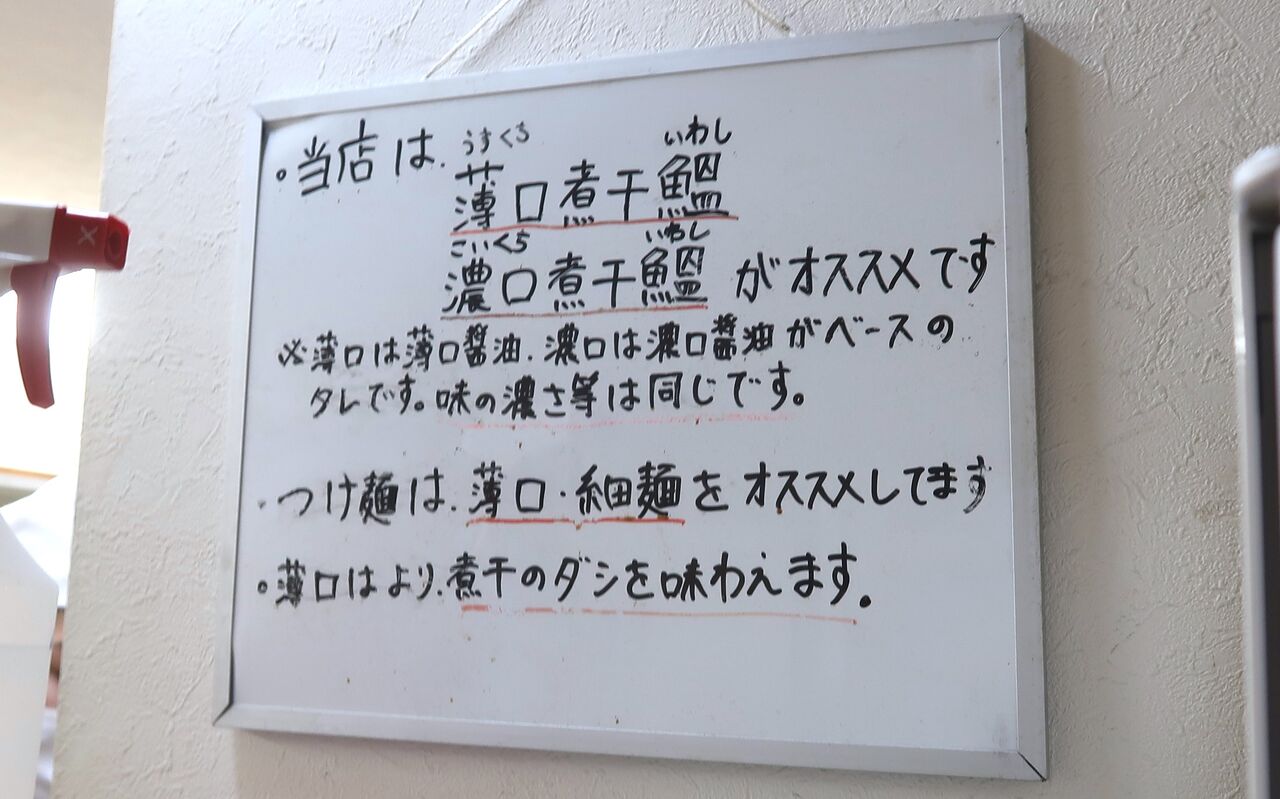 。当店は、
うすくち いわし
薄口煮干鰮
こいくち いわし
濃口煮干鰮 がオススメです
※薄口は薄口醤油、濃口は濃口醤油がベースの
タレです。味の濃さ等は同じです。
・つけ麺は、薄口・細麺をオススメしてます
。薄口はより、煮干のダシを味わえます。